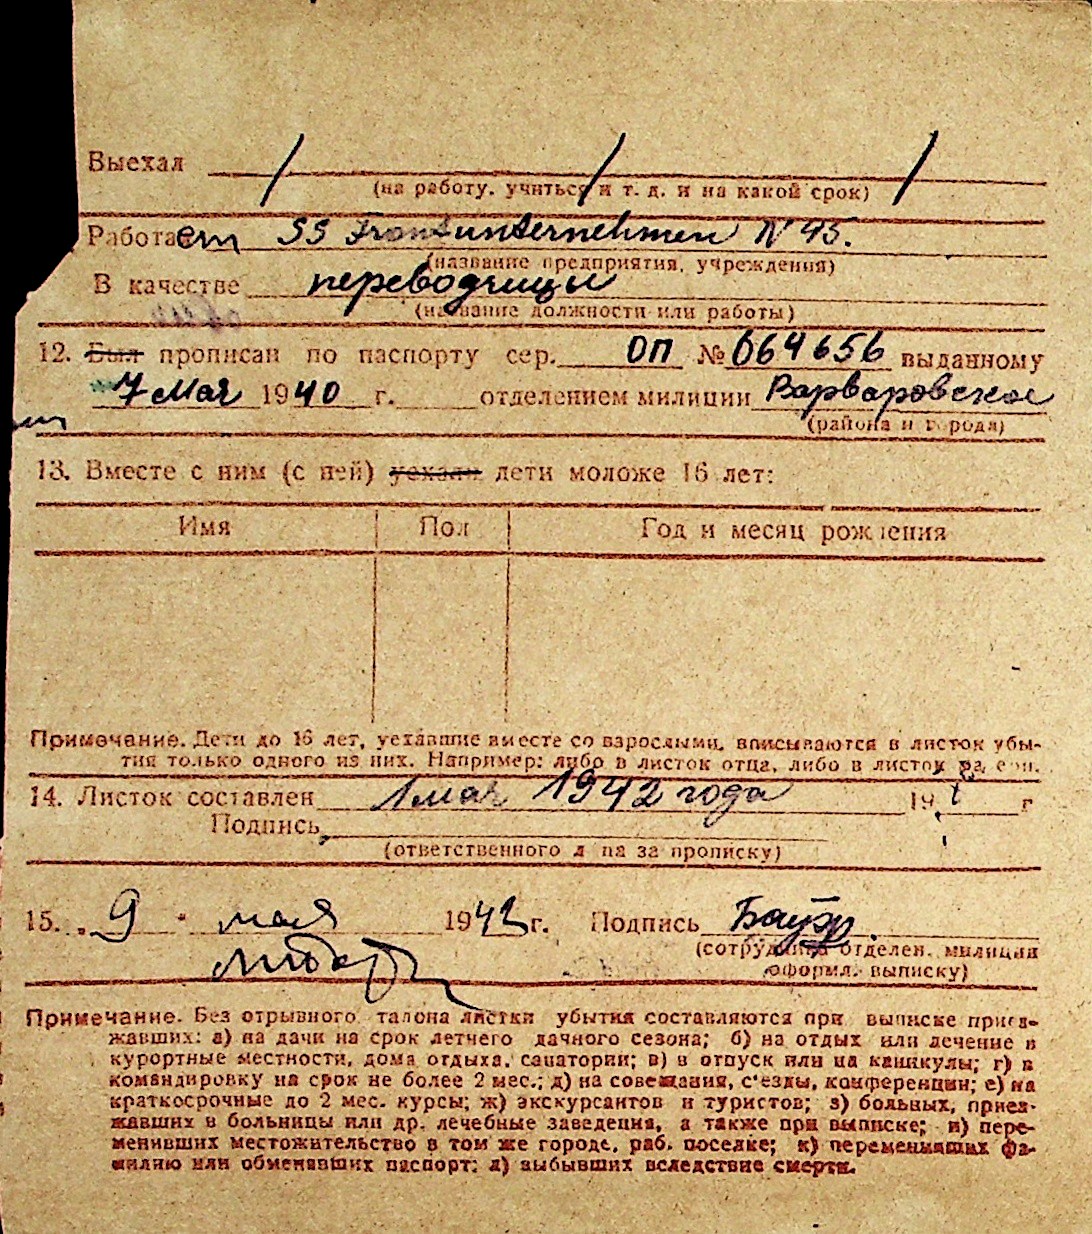 Выехал
(на работу, учиться и т. д. и на какой срок)
Работает SS Frontunternehmen N 45.
(название предприятия, учреждения)
В качестве переводчицы
(название должности или работы)
12. Был прописан по паспорту сер. ОП № 064656 выданному
7 мая 1940 г. отделением милиции Варваровское
(района и города)
13. Вместе с ним (с ней) уехали дети моложе 16 лет:
Имя Пол Год и месяц рождения
Примечание. Дети до 16 лет, уехавшие вместе со взрослыми, вписываются в листок убы-
тия только одного из них. Например: либо в листок отца, либо в листок
14. Листок составлен 1 мая 1942 года 19 г
Подпись
(ответственного лица за прописку)
15. „ 9 " мая 1942 г. Подпись Бауэр
(сотрудника отделен. милиции
оформл. выписку)
Примечание. Без отрывного талона листки убытия составляются при выписке приез-
жавших: а) на дачи на срок летнего дачного сезона; б) на отдых или лечение в
курортные местности, дома отдыха, санатории; в) в отпуск или на каникулы; г) в
командировку на срок не более 2 мес.; д) на совещания, с'езды, конференции; е) на
краткосрочные до 2 мес. курсы; ж) экскурсантов и туристов; з) больных, приез-
жавших в больницы или др. лечебные заведения, а также при выписке; и) пере-
менивших местожительство в том же городе, раб. поселке; к) переменивших фа-
милию или обменявших паспорт; л) выбывших вследствие смерти.